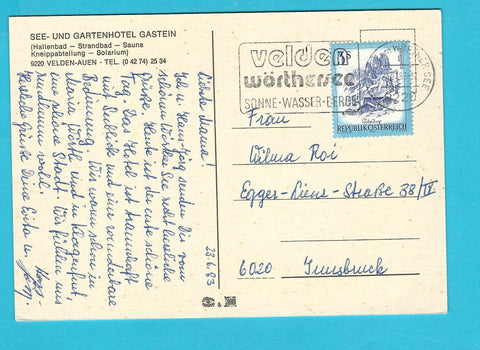 SEE- UND GARTENHOTEL GASTEIN
(Hallenbad — Strandbad — Sauna
Kneippabteilung — Solarium)
9220 VELDEN-AUEN - TEL. (0 42 74) 25 34
23.6.83
Liebste Mama!
Ich u. Hans-Jörg senden Dir vom
schönen Wörther See recht herzliche
Grüße. Heute ist der erste schöne
Tag. Das Hotel ist traumhaft
mit Seeblick und einer wunderbaren
Bedienung. Wir waren schon in
Maria Wörth und in Klagenfurt,
eine schöne Stadt. Wir fühlen uns
rundherum wohl.
Herzliche Grüße Deine u. Hans-
Jörg
velden
wörthersee
SONNE·WASSER·BERGE
REPUBLIK ÖSTERREICH
Frau
Wilma Roi
Egger-Lienz-Straße 38/IV
6020 Innsbruck
&